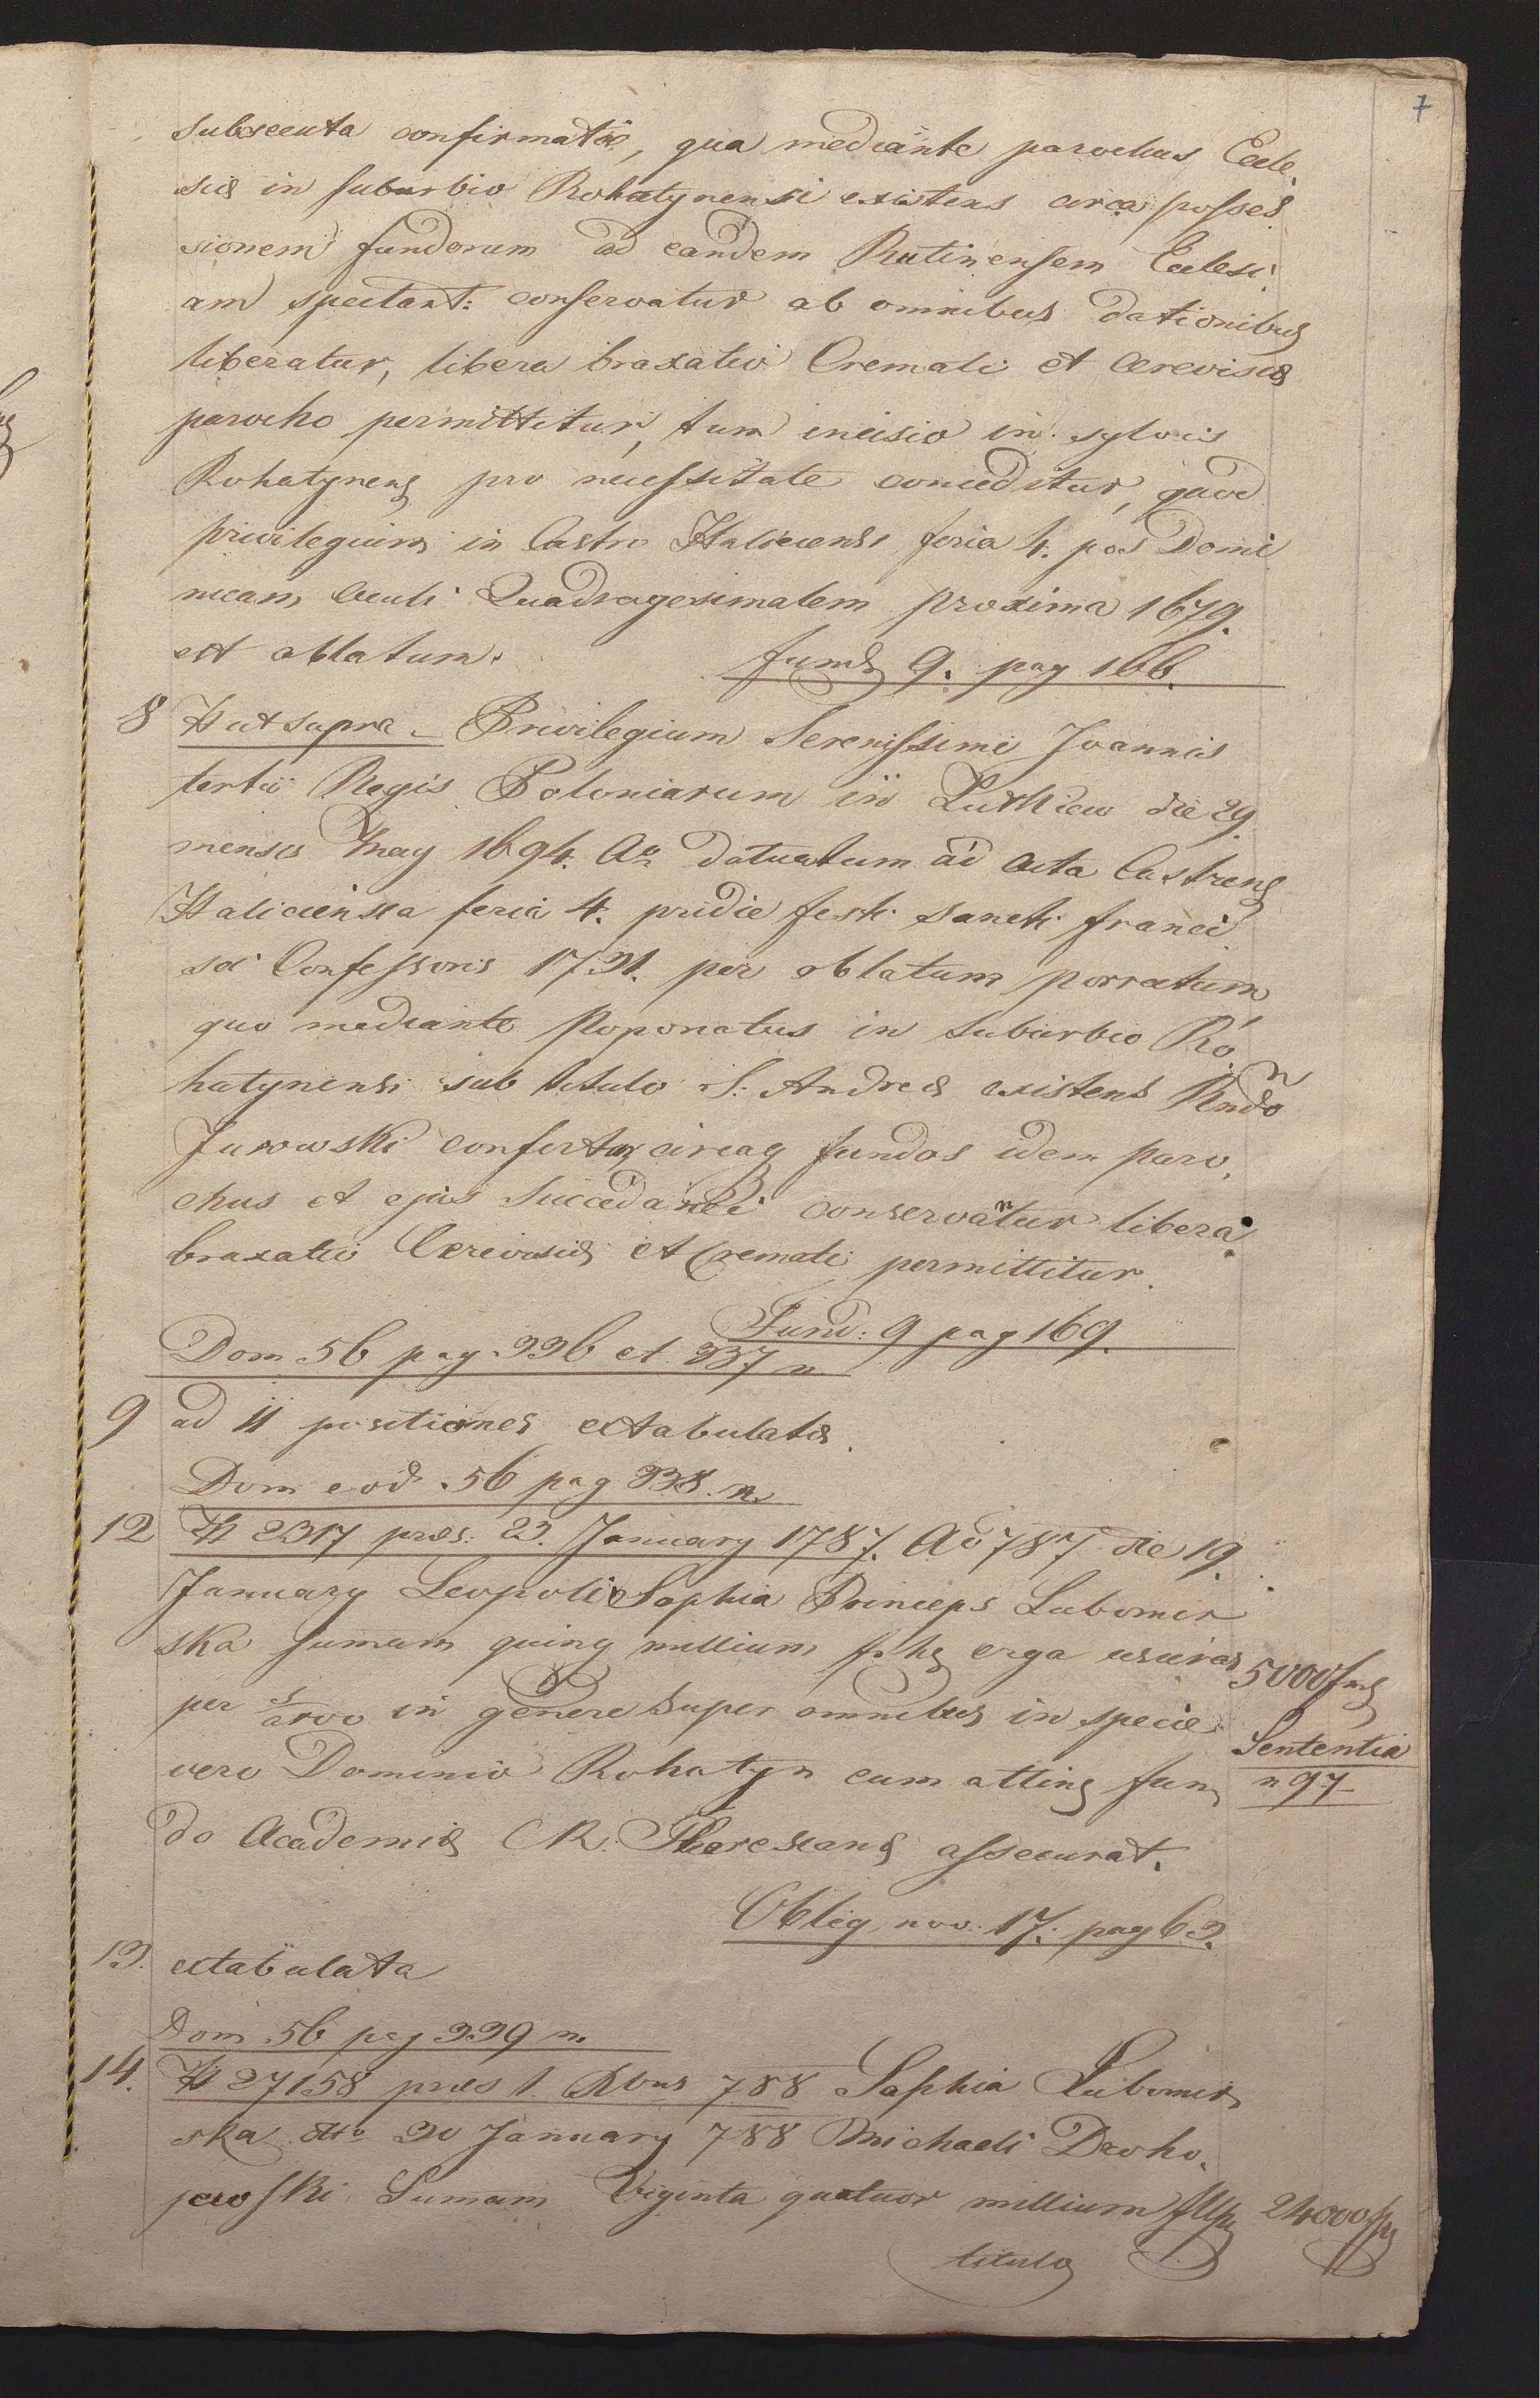 7
subsecuta confirmatæ, qua mediante parochus Eccle,
siæ in suburbio Rohatynensi existens circa posses
sionem fundorum ad eandem Rutinensem Eclesi,
am spectant: conservatur ab omnibus dationibus
liberatur, libera braxatio Cremati et Cerevisiæ
parocho permittitur, tum incisio in sylvis
Rohatynens pro necessitate conceditur, quod
privilegium in Castro Haliciensi feria 4. pos Domi
nicam Oculi Quadragesimalem proxima 1679.
est oblatum.
fund 9. pag 166.
8 H ut supra - Privilegium Serenissimi Joannis
tertii Regis Poloniarum in die 29
mensis May 1694. Ao datuatum ad acta Castrens
Haliciensia feria 4. pridie festi Sancti Franci
sci Confessoris 1731. per oblatum porrectum
quo mediante Poponatus in suburbio Ro,
hatynensi sub titulo S: Andreæ existens Rndo
Jurowski confertur circaq fundos idem paro,
chus et ejus Succedanei conservantur libera
braxatio Cerevisiæ et Cremati permittitur.
Fund: 9 pag 169.
Dom 56 pag. 336 et 337 n
9 ad 11 positiones extabulatæ.
Dom eod. 56 pag 338. n.
12 H 2317 præs: 23. January 1787. Ao 787 die 19
January Leopoli Sophia Princeps Lubomir
ska sumam quinq millium erga usuras
5000
per in genere super omnibus in specie
Sententia
vero Dominio Rohatyn cum atting fun,
n 97
do Academiæ CR: Theresianæ assecurat.
Oblig nov. 17. pag 63.
13. extabulata
Dom 56 pag 339 n.
14. H 27158 præs 1. Xbris 788 Sophia Lubomir,
ska 30 January 788 Michaeli Droho,
jewski Sumam Viginta quatuor millium flp
24000 fp
titulo